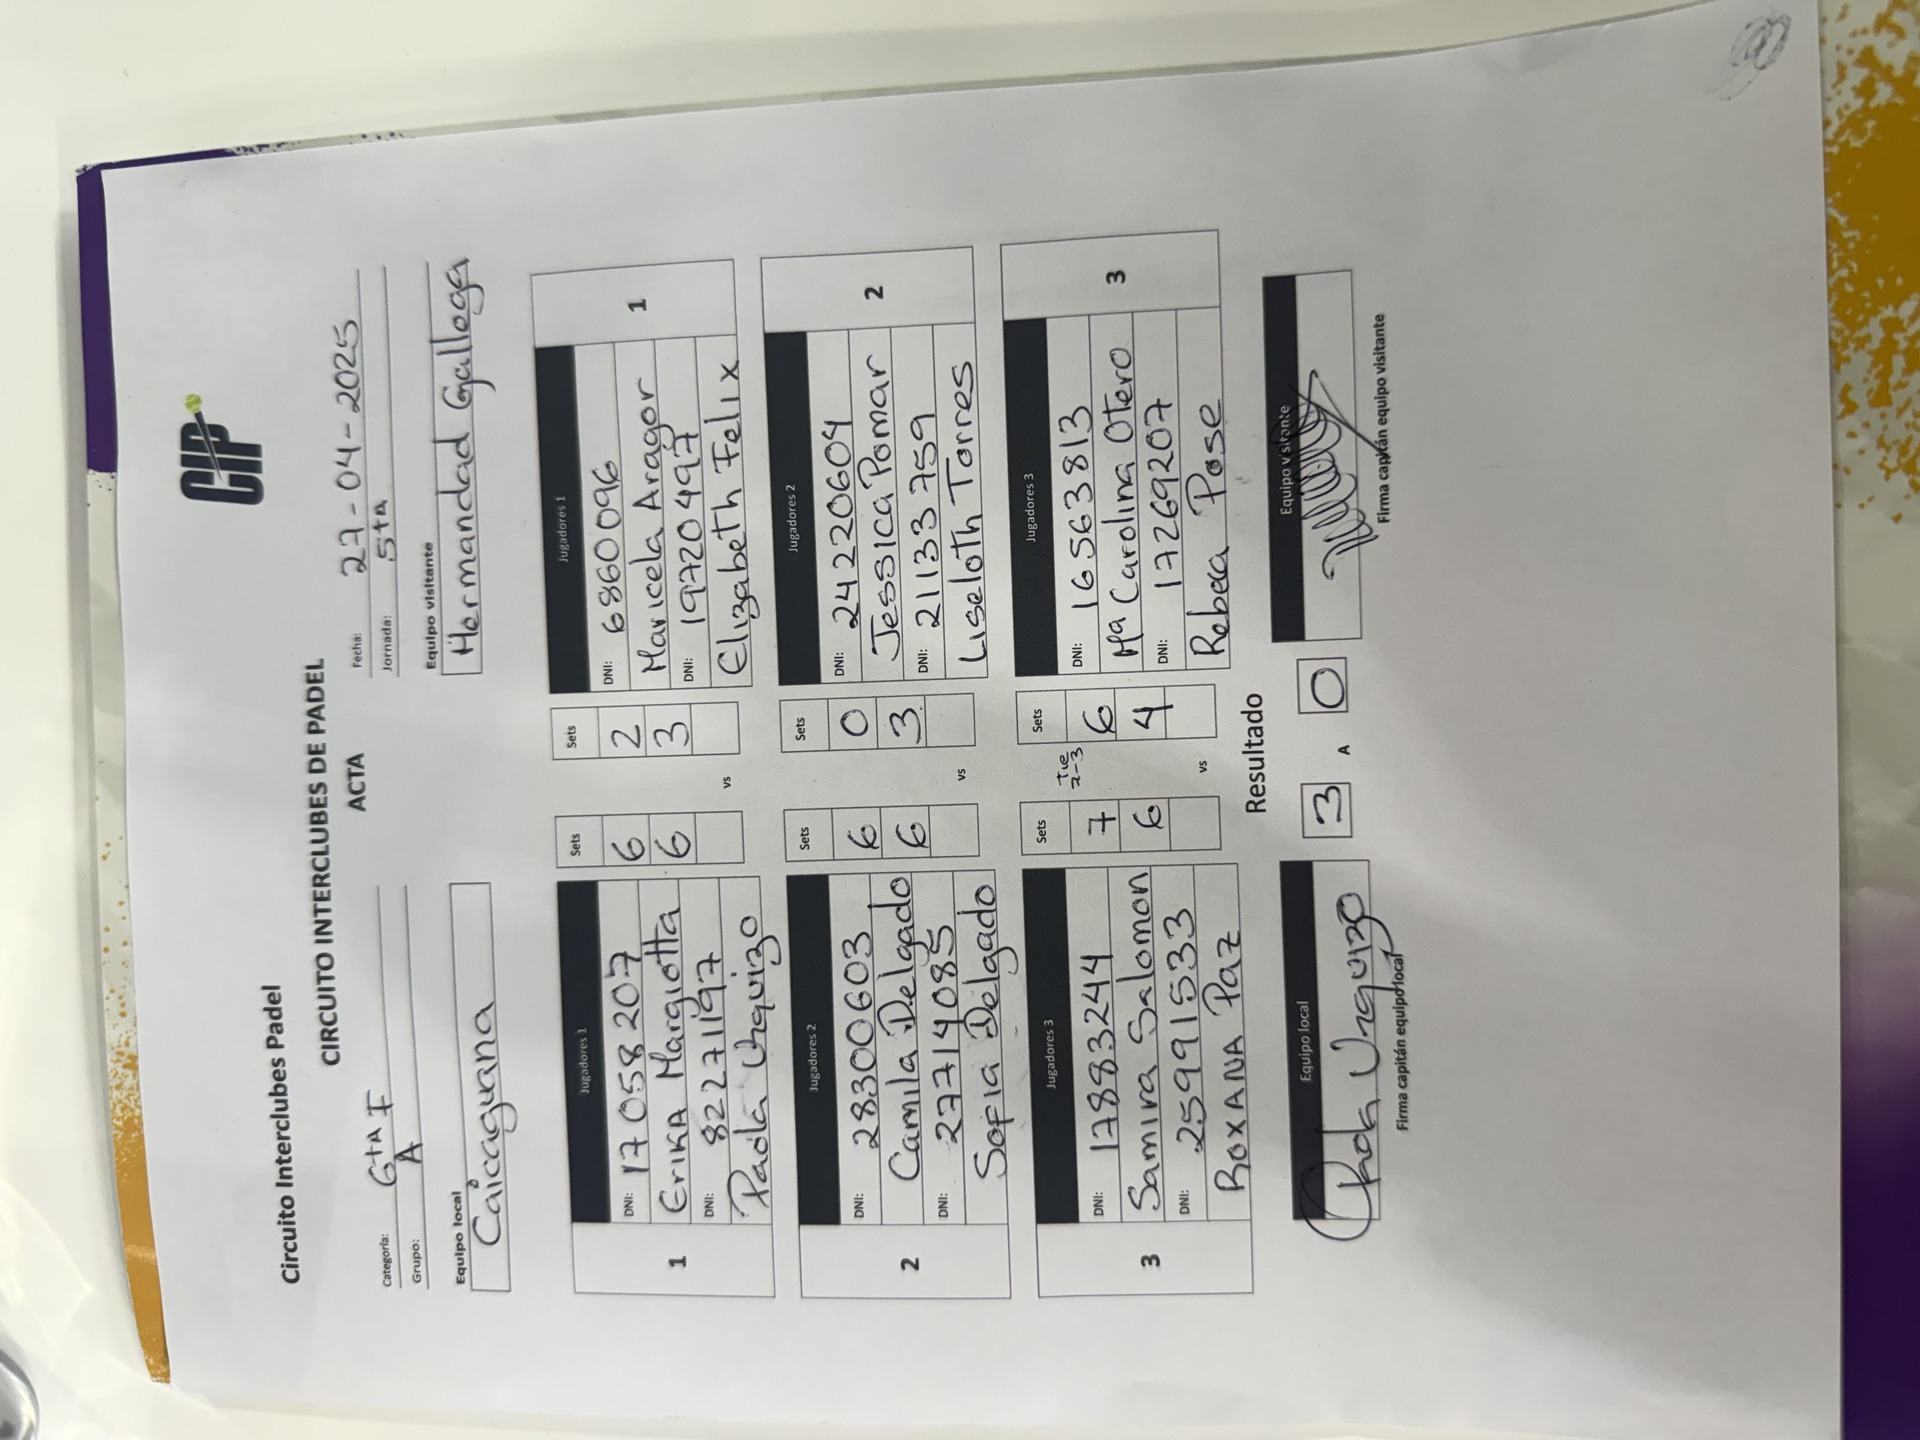 CIP
Circuito Interclubes Padel
CIRCUITO INTERCLUBES DE PADEL
ACTA
Categoría: 6ta F
Fecha: 27-04-2025
Grupo: A
Jornada: 5ta
Equipo local
Equipo visitante
Caicaguana
Hermandad Gallega
Jugadores 1 Sets Sets Jugadores 1
DNI: 17058207 6 2 DNI: 6860096
1 Erika Margiotta 6 3 Maricela Aragor 1
DNI: 82271197 vs DNI: 19720497
Paola Urquizo Elizabeth Felix
Jugadores 2 Sets Sets Jugadores 2
DNI: 28300603 6 0 DNI: 24220604
2 Camila Delgado 6 3 Jessica Pomar 2
DNI: 27714085 vs DNI: 21133759
Sofia Delgado Liseloth Torres
Jugadores 3 Sets Sets Jugadores 3
DNI: 17883244 7 Tie 7-3 6 DNI: 16563813
3 Samira Salomon 6 4 Mª Carolina Otero 3
DNI: 25991533 vs DNI: 17269207
ROXANA Paz Rebeca Pose
Resultado
Equipo local 3 A 0 Equipo visitante
Paola Urquizo
Firma capitán equipo local
Firma capitán equipo visitante